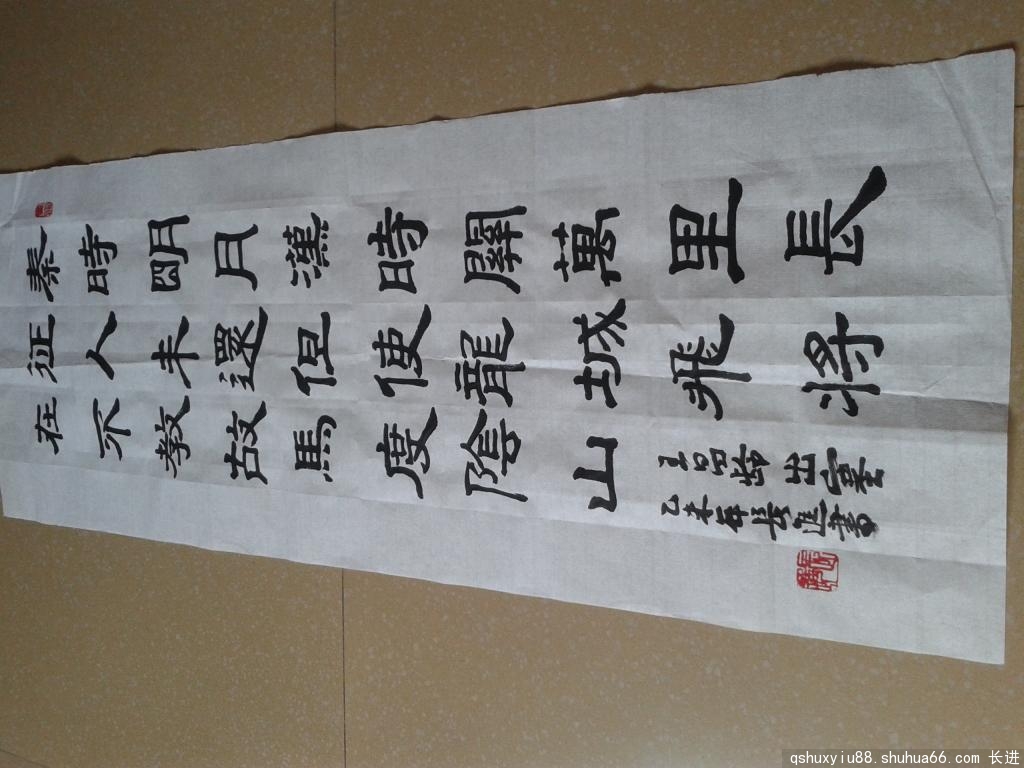 秦時朙月漢時關萬里長
征人未還但使龍城飛將
在不教故馬度陰山
王昌龄出塞
乙未年長進書
qshuxyiu88.shuhua66.com 长进